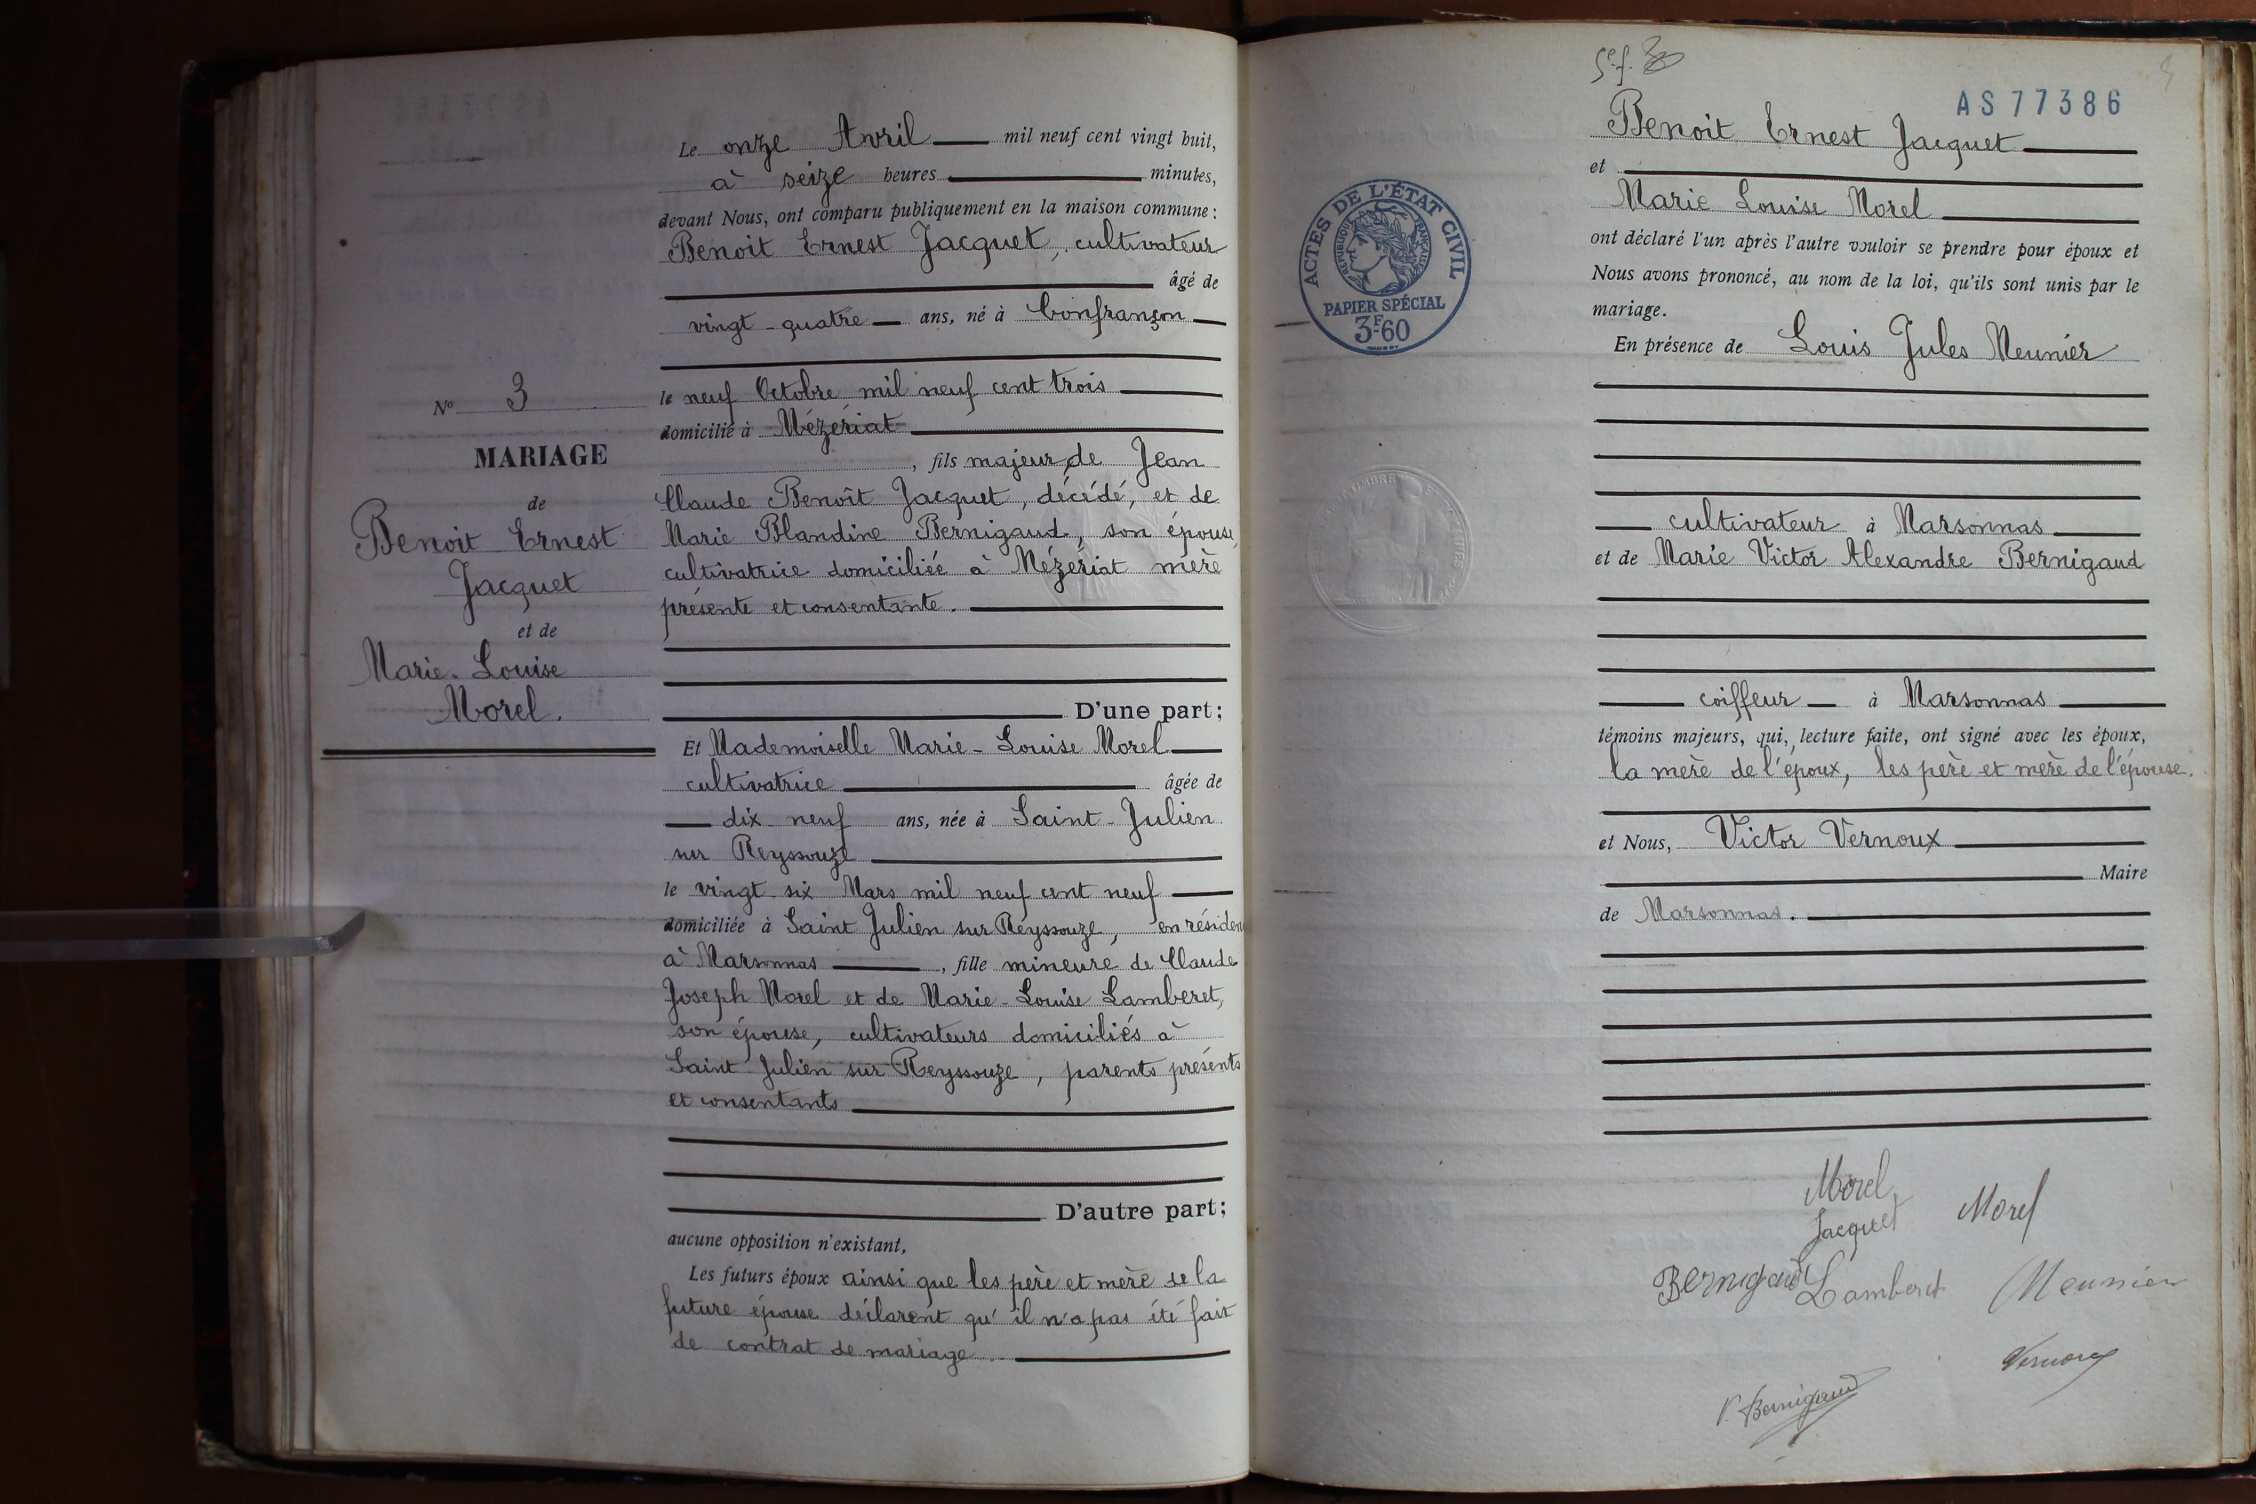 Le onze Avril mil neuf cent vingt huit,
à seize heures minutes,
devant Nous, ont comparu publiquement en la maison commune :
Benoit Ernest Jacquet, cultivateur
âgé de
vingt-quatre ans, né à Confrançon
le neuf Octobre mil neuf cent trois
domicilié à Mézériat
, fils majeur de Jean
Claude Benoît Jacquet, décédé, et de
Marie Blandine Bernigaud, son épouse,
cultivatrice domiciliée à Mézériat mère
présente et consentante.
D'une part;
N° 3
MARIAGE
de
Benoit Ernest
Jacquet
et de
Marie-Louise
Morel.
Et Mademoiselle Marie-Louise Morel
cultivatrice âgée de
dix-neuf ans, née à Saint-Julien
sur Reyssouze
le vingt six Mars mil neuf cent neuf
domiciliée à Saint Julien sur Reyssouze, en résiden
à Marsonnas, fille mineure de Claude
Joseph Morel et de Marie-Louise Lamberet,
son épouse, cultivateurs domiciliés à
Saint Julien sur Reyssouze, parents présents
et consentants
D'autre part;
aucune opposition n'existant,
Les futurs époux ainsi que les père et mère de la
future épouse déclarent qu'il n'a pas été fait
de contrat de mariage
AS77386
Benoit Ernest Jacquet
et
Marie Louise Morel
ont déclaré l'un après l'autre vouloir se prendre pour époux et
Nous avons prononcé, au nom de la loi, qu'ils sont unis par le
mariage.
En présence de Louis Jules Meunier
cultivateur à Marsonnas
et de Marie Victor Alexandre Bernigaud
coiffeur à Marsonnas
témoins majeurs, qui, lecture faite, ont signé avec les époux,
la mère de l'époux, les père et mère de l'épouse.
et Nous, Victor Vernoux
Maire
de Marsonnas.
ACTES DE L'ÉTAT CIVIL
RÉPUBLIQUE FRANÇAISE
PAPIER SPÉCIAL
3F60
Morel
Jacquet
Morel
Bernigaud
Lamberet
Meunier
Vernoux
V. Bernigaud